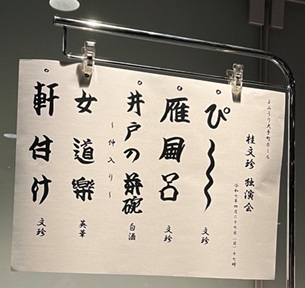 よみうり大手町ホール
桂文珍 独演会
令和七年四月二十七日（日）十七時
ぴ〜〜〜 文珍
雁風呂 文珍
〜仲入り〜
井戸の茶碗 白酒
女道楽 英華
軒付け 文珍